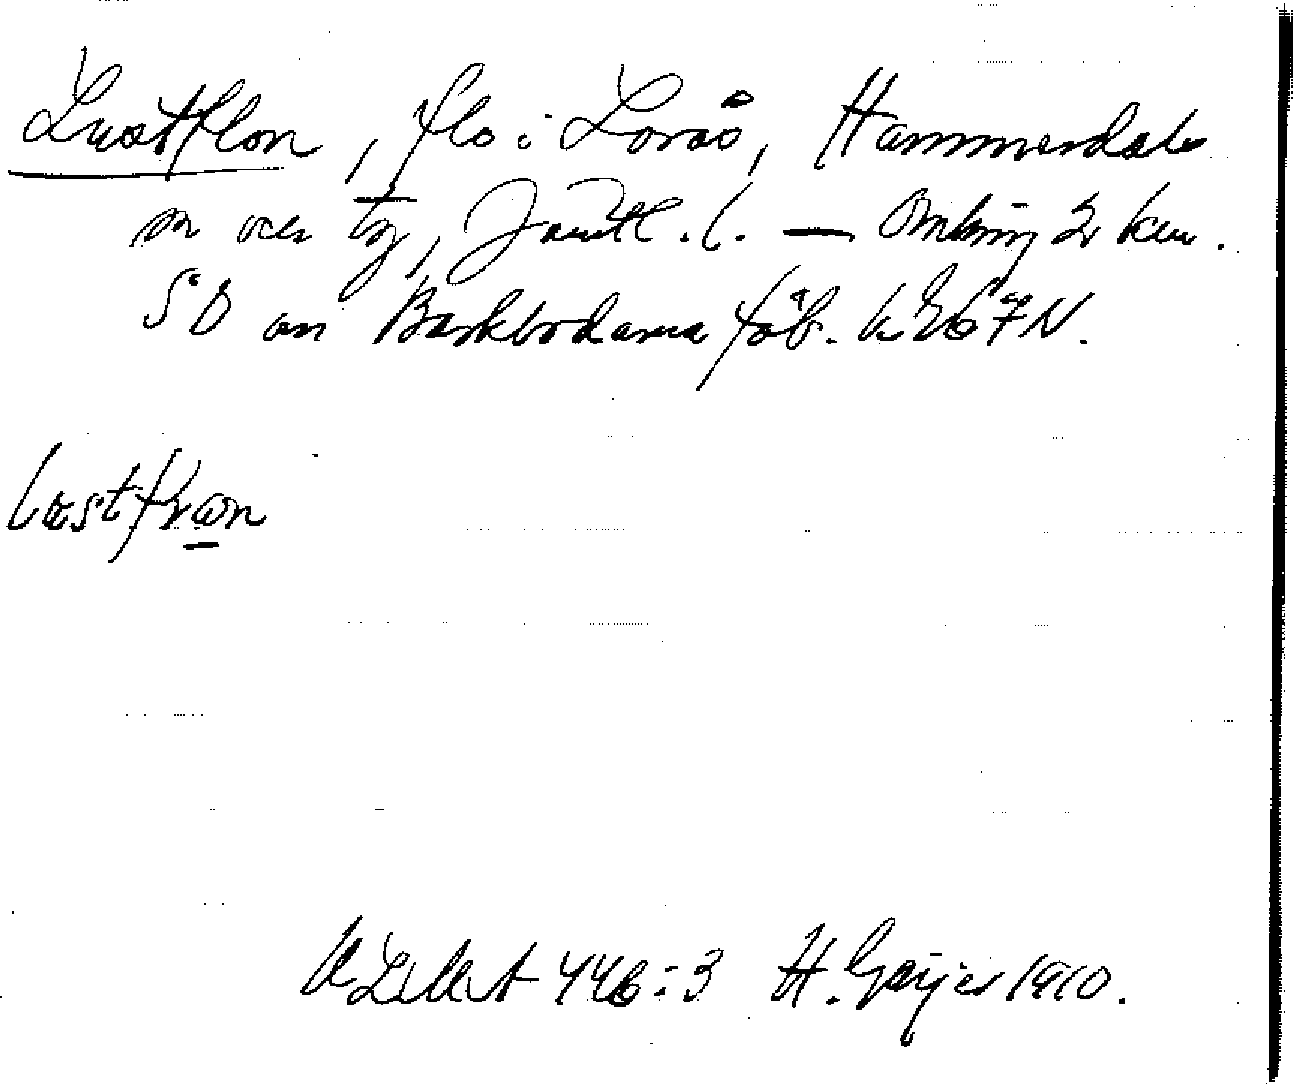 Lustflon, flo i Lorås, Hammerdals
sn och tg, Jämtl. l. — Omkring 2 km.
SO om Barkbodarna fäb. k. 267 N.
Lustfḷo̲n
ULMA 446:3 H. Geijer 1910.